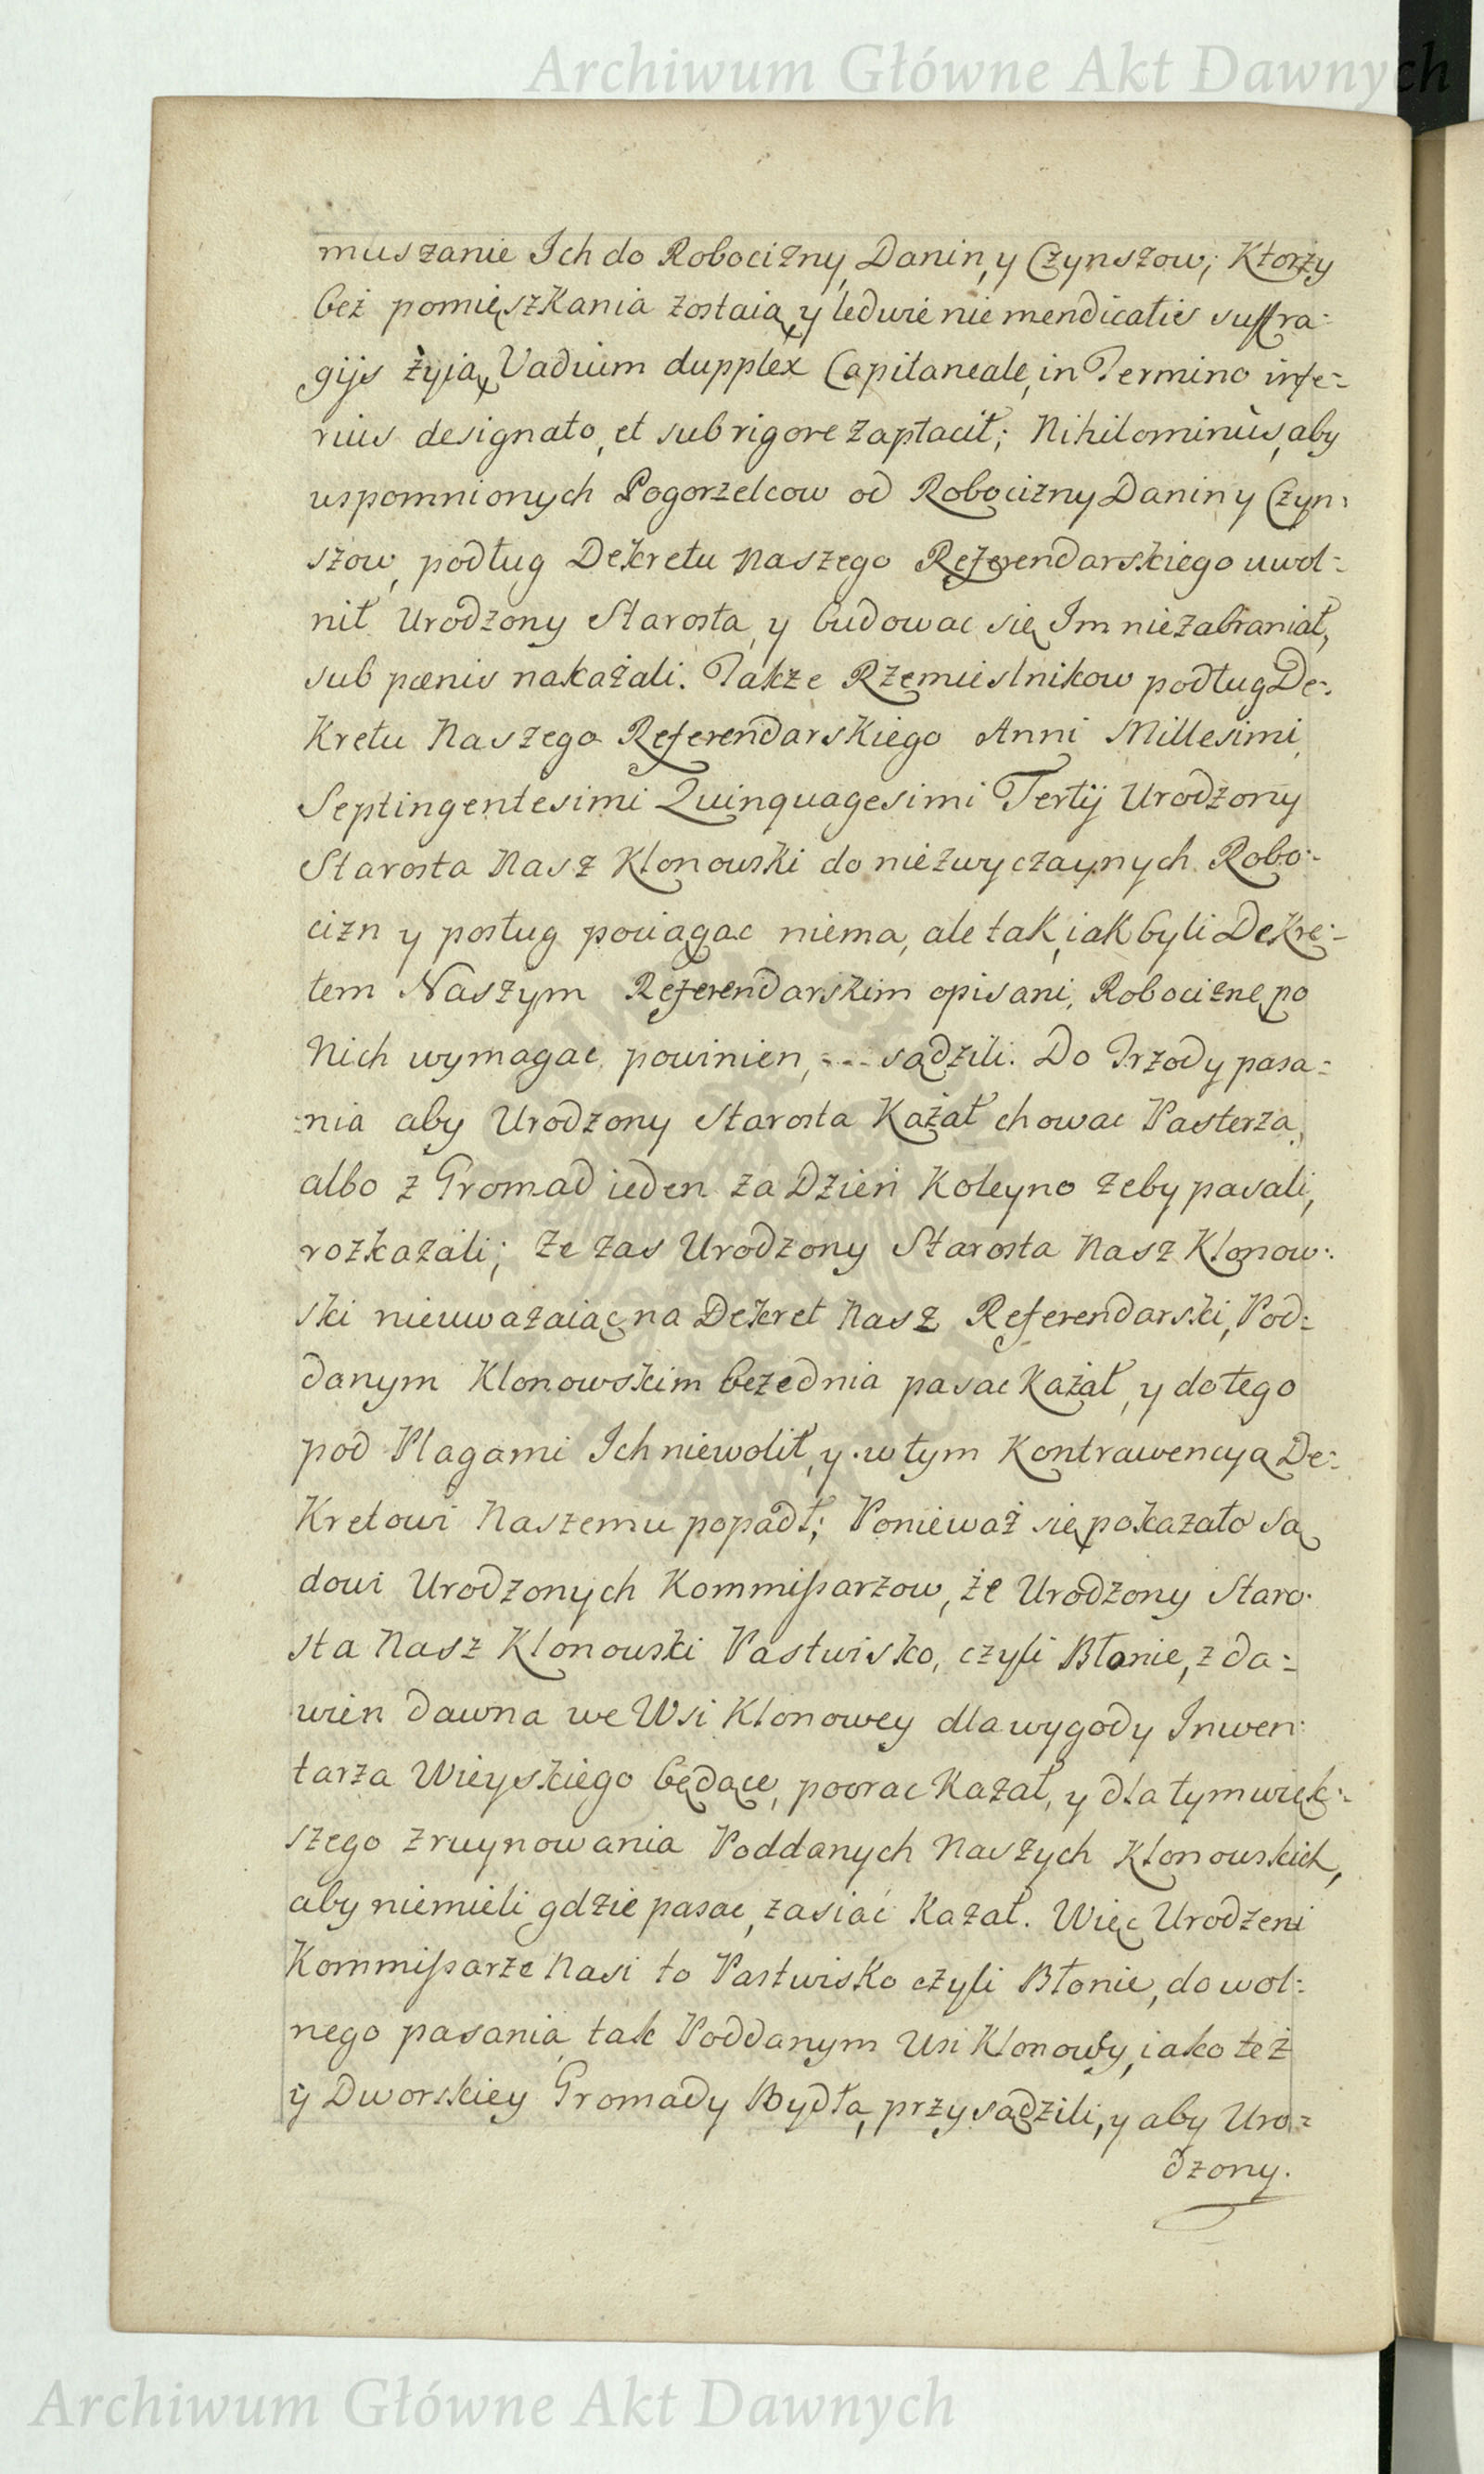 Archiwum Główne Akt Dawnych
muszanie Ich do Robocizny, Danin, y Czynszow; Ktorzy
bez pomięszkania zostaią, y ledwie nie mendicatis suffra=
gijs żyią, Vadium dupplex Capitaneale, in Termino infe=
rius designato, et sub rigore zapłacił; Nihilominùs, aby
uspomnionych Pogorzelcow od Robocizny Danin y Czyn=
szow, podług Dekretu Naszego Referendarskiego uwol=
nił Urodzony Starosta, y budowac się Im niezabraniał,
sub pœnis nakazali. Takze Rzemieslnikow podług De=
Kretu Naszego Referendarskiego Anni Millesimi
Septingentesimi Quinquagesimi Tertij Urodzony
Starosta Nasz Klonowski do niezwyczaynych Robo=
cizn y posług pociągac niema, ale tak, iak byli DeKre=
tem Naszym Referendarskim opisani, Robociznę po
Nich wymagac powinien, --- sądzili. Do Trzody pasa=
nia aby Urodzony Starosta Kazał chowac Pasterza,
albo z Gromad ieden za Dzień Koleyno zeby pasali,
rozkazali; Ze zas Urodzony Starosta Nasz Klonow=
ski nieuwazaiąc na Dekret Nasz Referendarski, Pod=
danym Klonowskim beze dnia pasac Kazał, y do tego
pod Plagami Ich niewolił, y w tym Kontrawencyą De=
Kretowi Naszemu popadł; Ponieważ się pokazało Są
dowi Urodzonych Kommissarzow, że Urodzony Staro=
sta Nasz Klonowski Pastwisko, czyli Błonie, z da=
wien dawna we Wsi Klonowey dla wygody Inwen=
tarza Wieyskiego będące, poorac Kazał, y dla tym więk=
szego zruynowania Poddanych Naszych Klonowskich,
aby niemieli gdzie pasac, zasiać Kazał. Więc Urodzeni
Kommissarze Nasi to Pastwisko czyli Błonie, do wol=
nego pasania tak Poddanym Wsi Klonowy, iako też
y Dworskiey Gromady Bydła, przysądzili, y aby Uro=
dzony.
Archiwum Główne Akt Dawnych